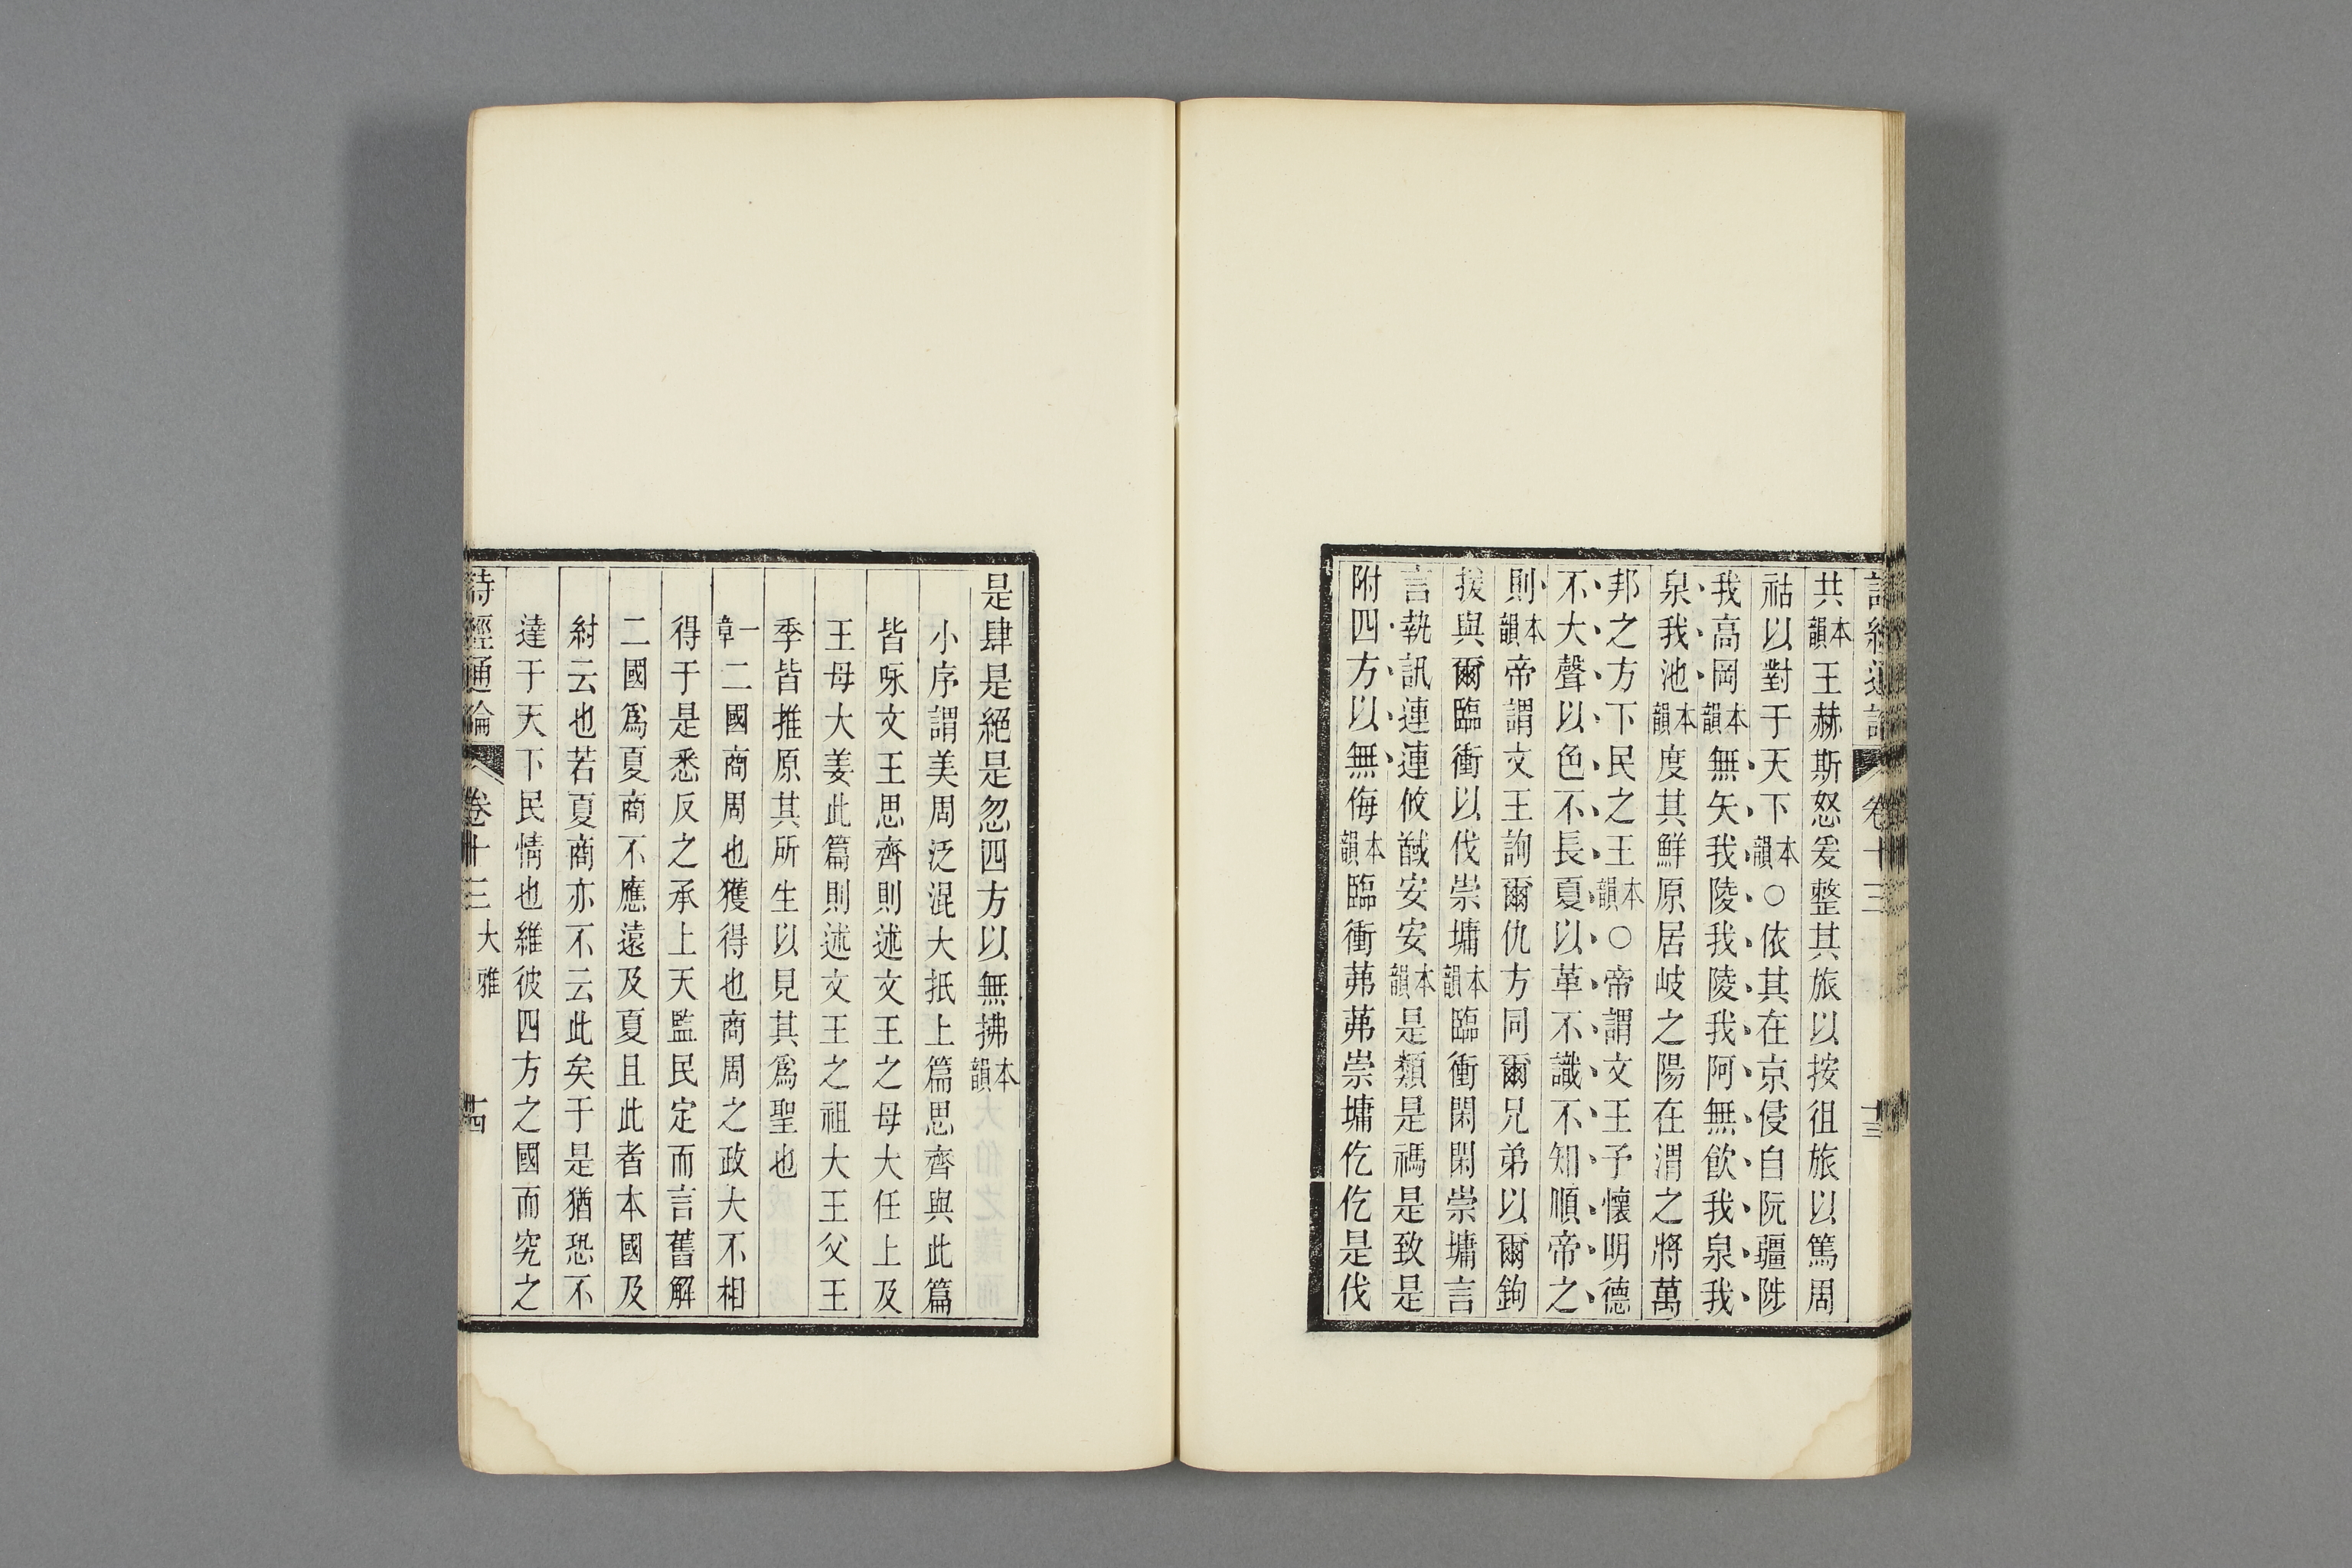 共本韻王赫斯怒爰整其旅以按徂旅以篤周
祜以對于天下本韻○依其在京侵自阮疆陟
我高岡本韻無矢我陵我陵我阿無飲我泉我
泉我池本韻度其鮮原居岐之陽在渭之將萬
邦之方下民之王本韻○帝謂文王予懷明德
不大聲以色不長夏以革不識不知順帝之
則本韻帝謂文王詢爾仇方同爾兄弟以爾鉤
援與爾臨衝以伐崇墉本韻臨衝閑閑崇墉言
言執訊連連攸馘安安本韻是類是禡是致是
附四方以無侮本韻臨衝茀茀崇墉仡仡是伐
是肆是絕是忽四方以無拂本韻
小序謂美周泛混大抵上篇思齊與此篇
皆咏文王思齊則述文王之母大任上及
王母大姜此篇則述文王之祖大王父王
季皆推原其所生以見其爲聖也
一章二國商周也獲得也商周之政大不相
得于是悉反之承上天監民定而言舊解
二國爲夏商不應遠及夏且此者本國及
紂云也若夏商亦不云此矣于是猶恐不
達于天下民情也維彼四方之國而究之
詩經通論 卷十三 大雅 十四